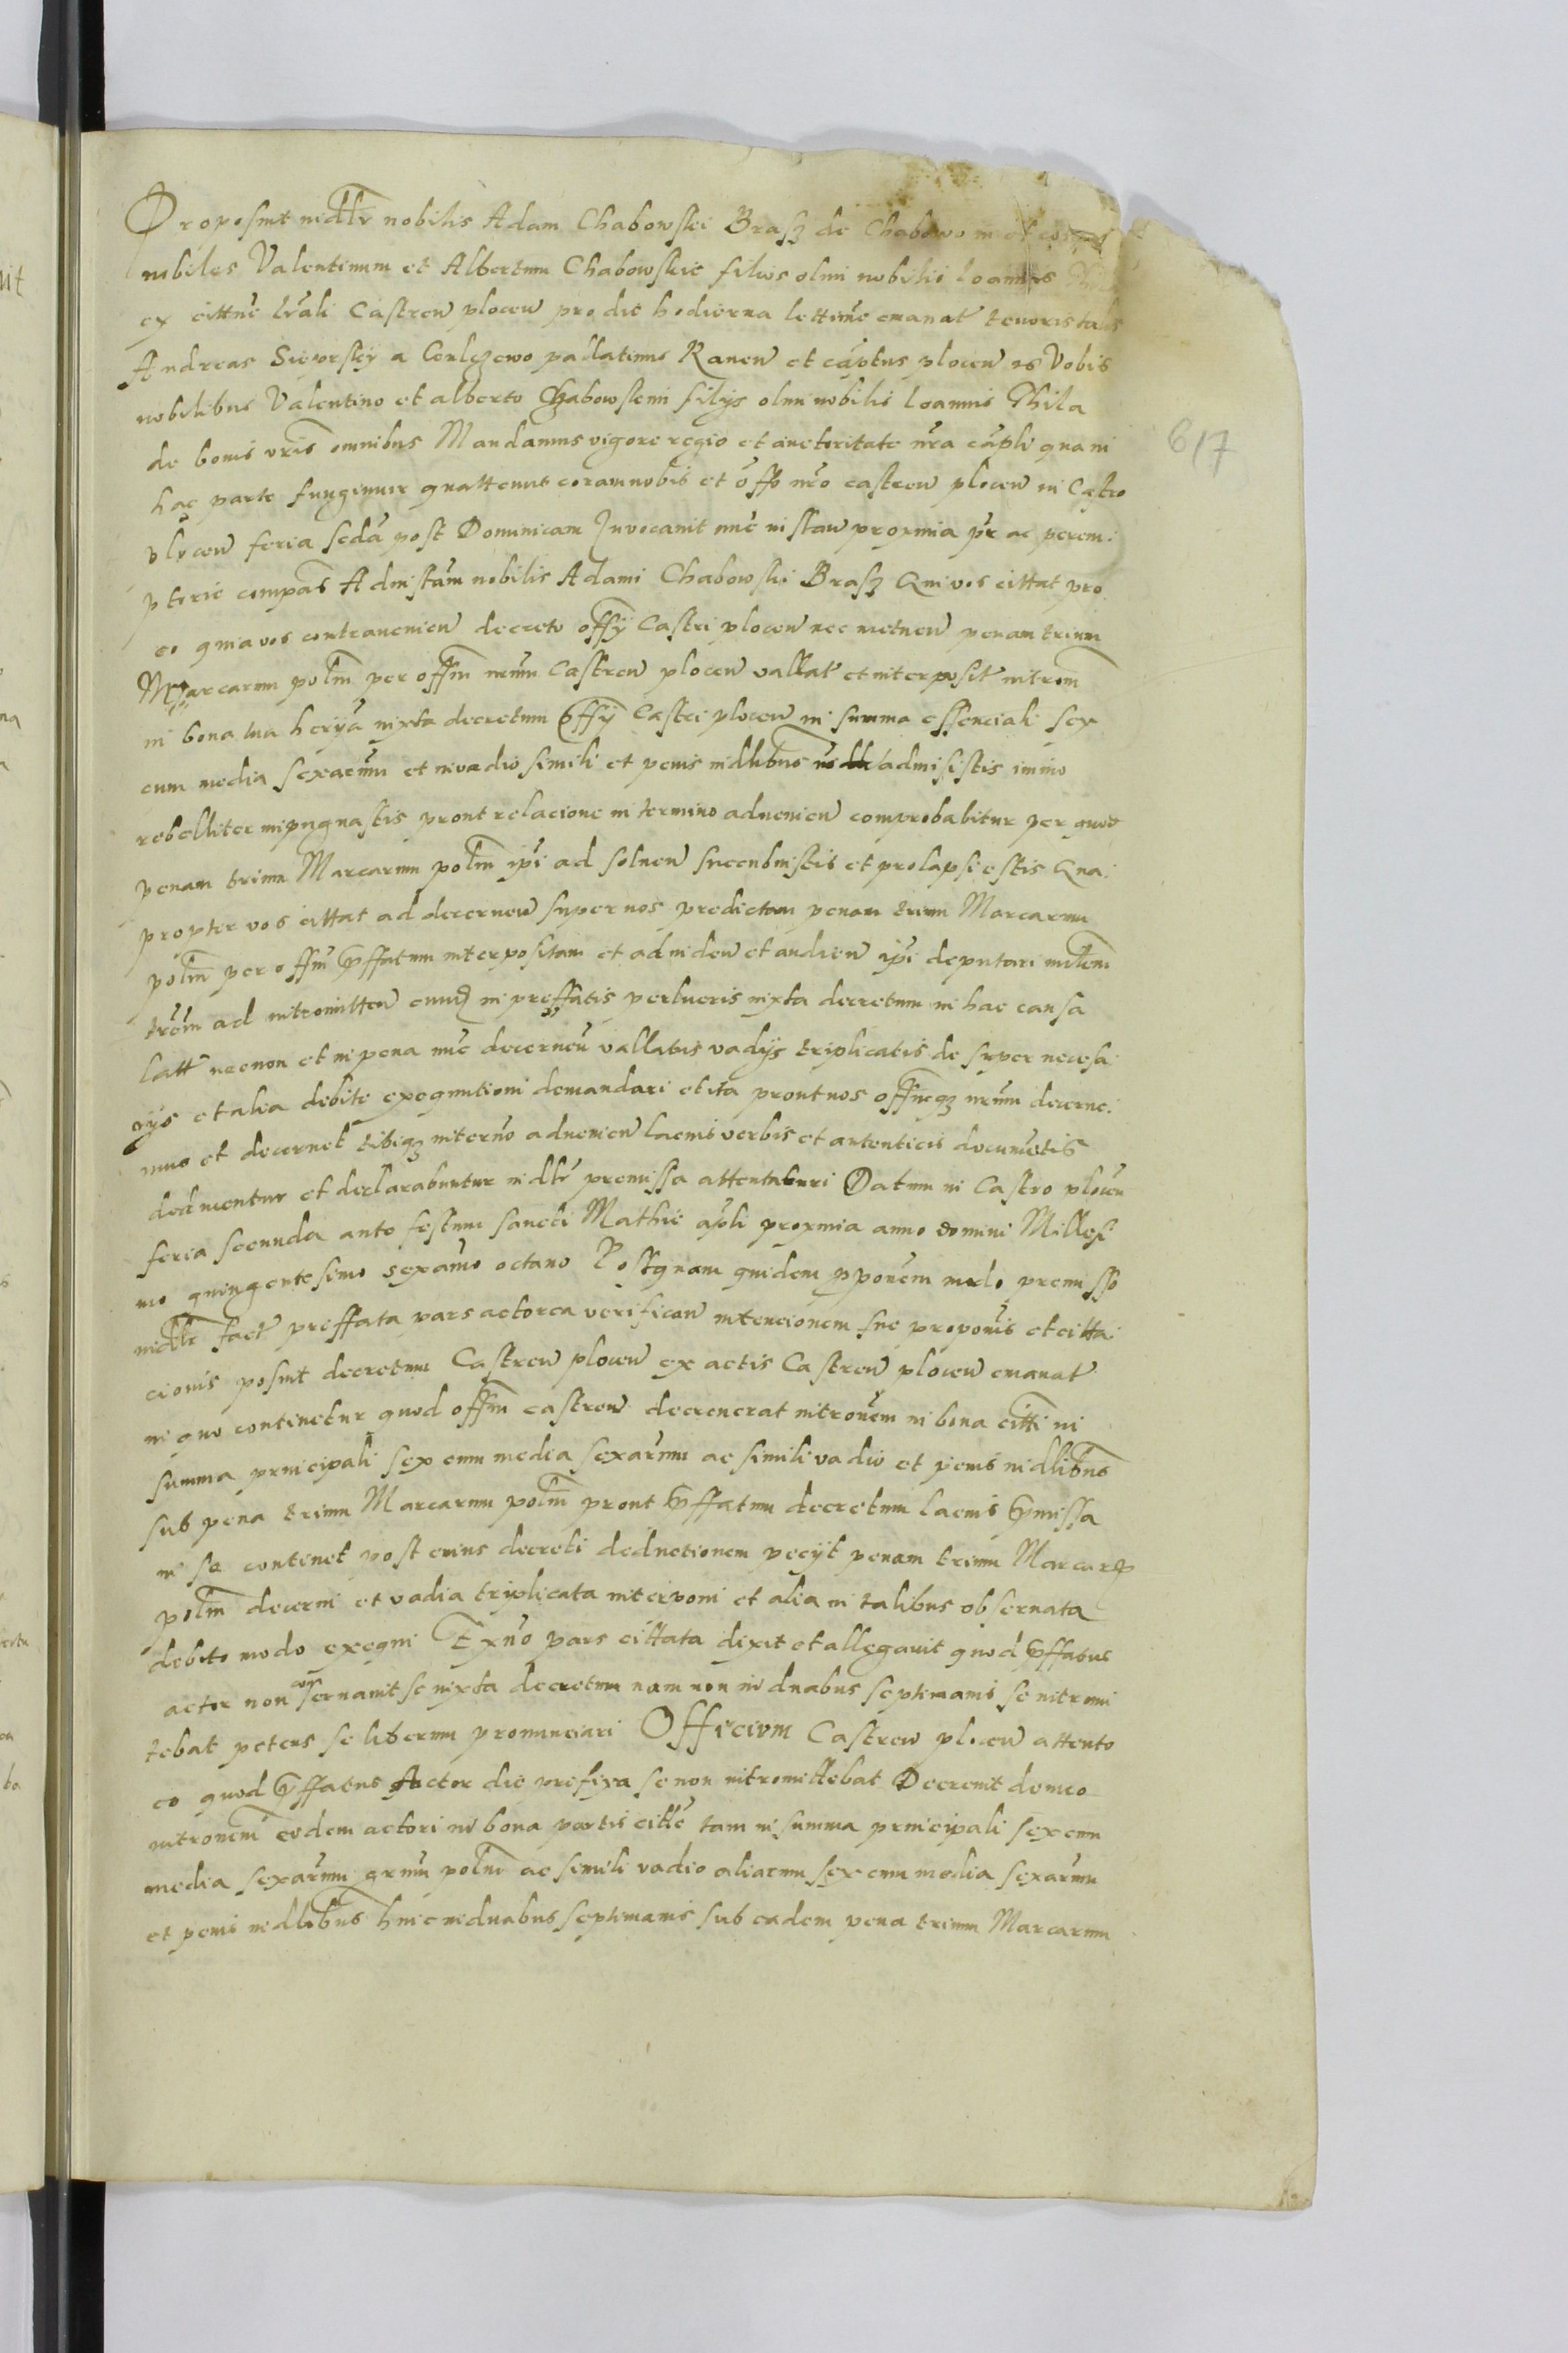 Proposuit nidlr nobilis Adam Chabowski Brasz de Chabowo in et
nobiles Valentinum et Albertum Chabowskie filios olim nobilis Ioannis
ex cittne trali Castren plocen pro die hodierna lettime emanat tenoris talis
Andreas Sieprsky a Gulczewo pallatinus Raven et captus plocen es Vobis
nobilibus Valentino et alberto Chabowskim filys olim nobilis Ioannis Thila
de bonis vris omnibus Mandamus vigore regio et auctoritate nra capli qua in
hac parte fungimur quattenus coram nobis et offo nro castren plocen in Castro
plocen feria scda post Dominicam Invocavit nuc instan proxima pr ac perem.
ptorie compas Ad instam nobilis Adami Chabowski Brasz Qui vos cittat pro
eo quia vos contravenien decreto offy Castri plocen nec metuen penam trium
Marcarum polm per offm nrum Castren plocen vallat et interposit introm
in bona tua herya iuxta decretum Offy Castri plocen in summa essenciali sex
cum media sexarum et in vadio simili et penis nidlibus no admisistis immo
rebelliter inpugnastis prout relacione in termino advenien comprobabitur per quod
penam trium Marcarum polm ipi ad solven succubuistis et prolapsi estis Qua.
propter vos cittat ad decernen super vos predictam penam trium Marcarum
polm per offm pffatum interpositam et ad viden et audien ipi deputari mitem
trem ad intromitten eund in preffatis perlucris iuxta decretum in hac causa
latt necnon et in pena nuc decernen vallatis vadys triplicatis de super necessa.
rys et alia debite exequutioni demandari et ita prout nos offmqz nrum decerne.
mus et decernet tibiqz in termo advenien lacius verbis et autenticis documetis
deducentur et declarabuntur nidlr premissa attentaturi Datum in Castro plocen
feria secunda ante festum sancti Mathie apli proxima anno domini Millesi
mo quingentesimo sexamo octavo Postquam quidem pponem modo premisso
nidlr fact preffata pars actorea verifican intencionem sue proponis et citta.
cionis posuit decretum Castren plocen ex actis Castren plocen emanat
in quo continetur quod offm castren decreverat intronem in bona citti in
summa principali sex cum media sexarum ac simili vadio et penis nidlibus
sub pena trium Marcarum polm prout pffatum decretum lacius pmissa
in se continet post cuius decreti deductionem pecyt penam trium Marcarum
polm decerni et vadia triplicata interponi et alia in talibus observata
debito modo exequi Ex vo pars cittata dixit et allegavit quod pffatus
actor non conservavit se iuxta decretum nam non in duabus septimanis se intromi
tebat petens se liberum pronunciari Officivm Castren plocen attento
eo quod pffatus Actor die prefixa se non intromittebat Decrevit denuo
intronem eidem actori in bona partis citte tam in summa principali sex cum
media sexarum grum polm ac simili vadio aliarum sex cum media sexarum
et penis nidlibus hinc in duabus septimanis sub eadem pena trium Marcarum
617